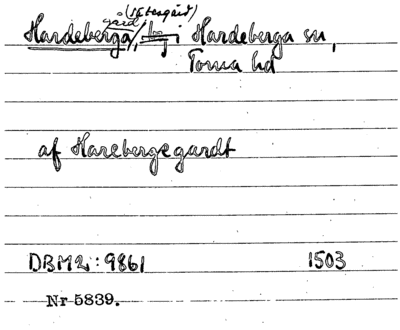 (Sätesgård)
gård
Hardeberga, i Hardeberga sn,
Torna hd
af Harebergegardt
DBM2:9861 1503
Nr 5839.